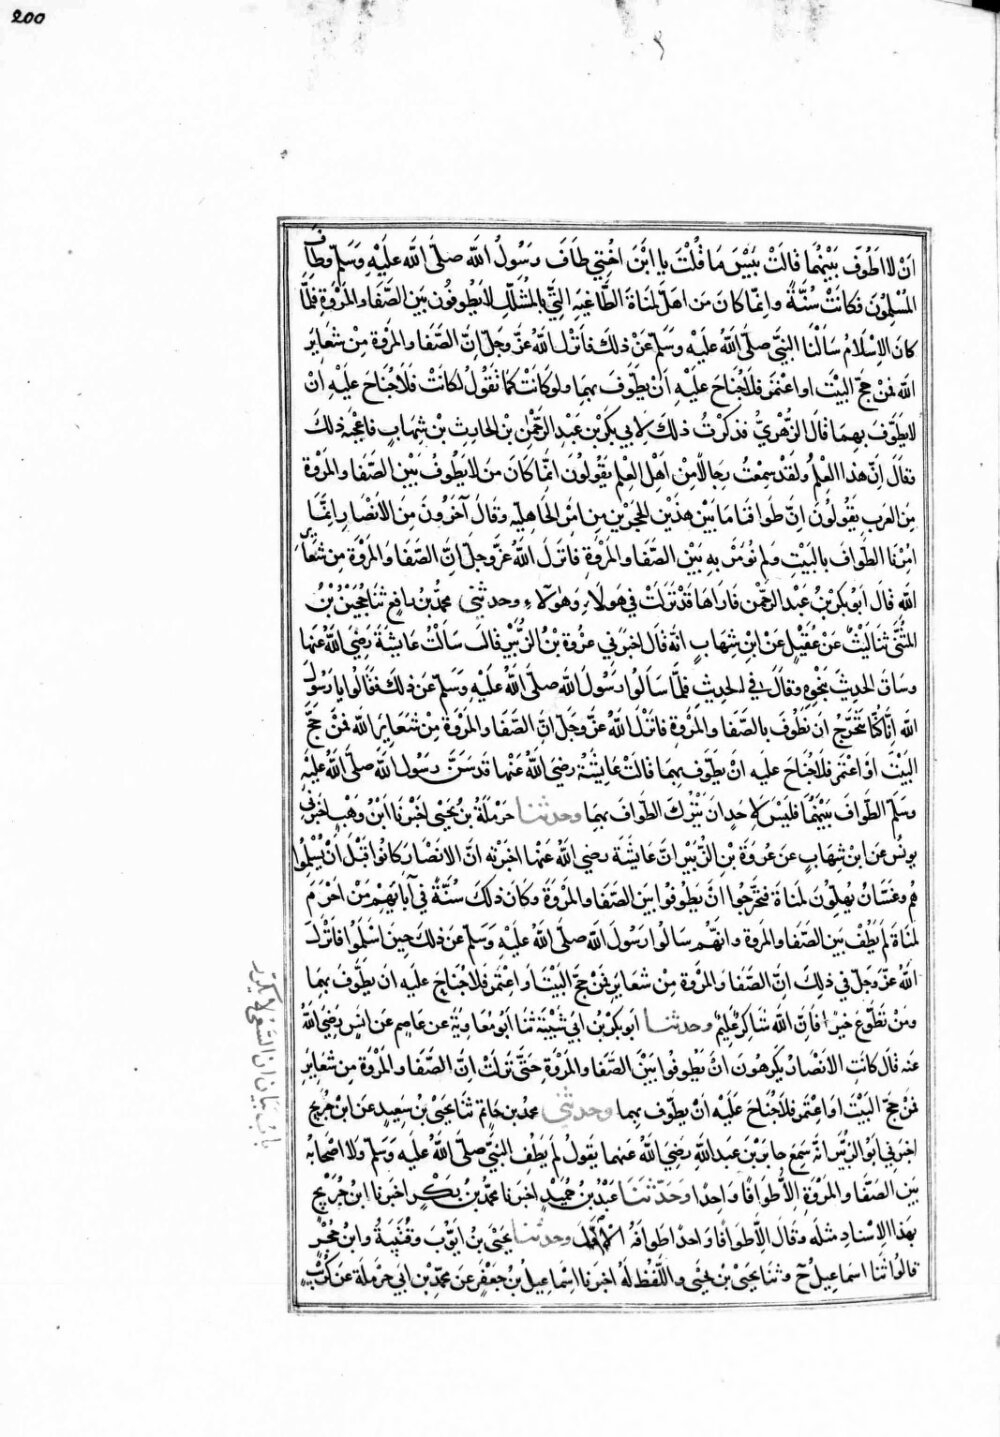 200
اَنْ لَا اَطُوْفَ بَيْنَهُمَا قَالَتْ بِئْسَ مَا قُلْتَ يَا ابْنَ اُخْتِي طَافَ رَسُولُ اللّه صلّى اللّه عَلَيْهِ وَسَلّم وَطَافَ
المُسْلِمُوْنَ فَكَانَتْ سُنَّةً وَاِنَّمَا كَانَ مَن اَهَلَّ لِمَنَاةَ الطَّاغِيَةِ الَّتِي بِالمُشَلَّلِ لَا يَطُوفُوْنَ بَيْنَ الصَّفَا وَالمَرْوَةِ فَلَمَّا
كَانَ الاِسْلَامُ سَاَلْنَا النَّبِيَّ صَلّى اللّهُ عَلَيْهِ وَسَلّمَ عَنْ ذٰلِكَ فَاَنْزَلَ اللّهُ عَزَّ وَجَلَّ اِنَّ الصَّفَا وَالمَرْوَةَ مِنْ شَعَايِرِ
اللّه فَمَنْ حَجَّ البَيْتَ اَوِ اعْتَمَرَ فَلَا جُنَاحَ عَلَيْهِ اَنْ يَطَّوَّفَ بِهِمَا وَلَو كَانَتْ كَمَا تَقُوْلُ لَكَانَتْ فَلَا جُنَاحَ عَلَيْهِ اَنْ
لَا يَطَّوَّفَ بِهِمَا قَالَ الزُّهْرِيُّ فَذَكَرْتُ ذٰلِكَ لِاَبِي بَكْرِ بْنِ عَبْدِ الرَّحْمٰنِ بْنِ الحَارِثِ بْنِ هِشَامٍ فَاَعْجَبَهُ ذٰلِكَ
وَقَالَ اِنَّ هٰذَا العِلْمُ وَلَقَدْ سَمِعْتُ رِجَالًا مِنْ اَهْلِ العِلْمِ يَقُوْلُوْنَ اِنَّمَا كَانَ مَن لَا يَطُوْفُ بَيْنَ الصَّفَا وَالمَرْوَةِ
مِنَ العَرَبِ يَقُوْلُوْنَ اِنَّ طَوَافَنَا مَا بَيْنَ هٰذَيْنِ الحَجَرَيْنِ مِن اَمْرِ الجَاهِلِيَّةِ وَقَالَ آخَرُوْنَ مِنَ الاَنْصَارِ اِنَّمَا
اُمِرْنَا بالطَّوَافِ بِالبَيْتِ وَلَم نُؤْمَرْ بِهِ بَيْنَ الصَّفَا وَالمَرْوَةِ فَاَنْزَلَ اللّهُ عَزَّ وَجَلَّ اِنَّ الصَّفَا وَالمَرْوَةَ مِن شَعَايِرِ
اللّهِ قَالَ اَبُوْ بَكْرِ بْنُ عَبْدِ الرَّحْمٰنِ فَاَرَاهَا قَدْ نَزَلَتْ فِي هَؤُلَاءِ وَهَؤُلَاءِ وحدثني محمّدُ بْنُ رَافِعٍ ثنا حُجَيْنُ بْنُ
المُثَنَّى ثنا لَيْثٌ عَنْ عُقَيْلٍ عَنْ ابْنِ شِهَابٍ اَنَّهُ قَالَ اَخْبَرَنِي عُرْوَةُ بْنُ الزُّبَيْرِ قَالَ سَاَلْتُ عَايِشَةَ رَضِيَ اللّهُ عَنهَا
وَسَاقَ الحَدِيْثَ بِنَحْوِهِ وَقَالَ فِي الحَدِيثِ فَلَمَّا سَاَلُوا رَسُوْلَ اللّهِ صَلّى اللّهُ عَلَيْهِ وَسَلّمَ عَنْ ذٰلِكَ فَقَالُوا يَا رَسُوْلَ
اللّه اِنَّا كُنَّا نَتَحَرَّجُ اَن نَطُوْفَ بِالصَّفَا وَالمَرْوَةِ فَاَنْزَلَ اللّهُ عَزَّ وَجَلَّ اِنَّ الصَّفَا وَالمَرْوَةَ مِنْ شَعَايِرِ اللّه فَمَنْ حَجَّ
البَيْتَ اَوِ اعْتَمَرَ فَلَا جُنَاحَ عَلَيهِ اَنْ يَطَّوَّفَ بِهِمَا قَالَتْ عَايِشَةُ رَضِيَ اللّهُ عَنْهَا قَدْ سَنَّ رَسُوْلُ اللّه صلّى اللّهُ عَلَيْهِ
وسَلّم الطَّوَافَ بَيْنَهُمَا فَلَيْسَ لِاَحَدٍ اَنْ يَتْرُكَ الطَّوَافَ بِهِمَا وحدثنا حَرْمَلَةُ بْنُ يَحْيٰى اَخْبَرَنَا ابْنُ وَهْبٍ اَخْبَرَنِي
يُونُسُ عَن ابْنِ شِهَابٍ عَن عُرْوَةَ بْنِ الزُّبَيْرِ اَنَّ عَايِشَةَ رضي اللّهُ عَنْهَا اَخْبَرَتْهُ اَنَّ الاَنْصَارَ كَانُوا قَبْلَ اَنْ يُسْلِمُوا
هُم وَغَسَّانُ يُهِلُّوْنَ لِمَنَاةَ فَتَحَرَّجُوا اَنْ يَطُوْفُوا بَيْنَ الصَّفَا وَالمَرْوَةِ وَكَانَ ذٰلِكَ سُنَّةً فِي آبَايِهِمْ مَنْ اَحْرَمَ
لِمَنَاةَ لَم يَطُفْ بَيْنَ الصَّفَا وَالمَرْوَةِ وَانَّهُم سَاَلُوا رَسُوْلَ اللّه صَلّى اللّهُ عَلَيْهِ وَسَلّمَ عَن ذٰلِكَ حِيْنَ اَسْلَمُوا فَاَنْزَلَ
اللّهُ عَزَّ وَجَلَّ فِي ذٰلِكَ اِنَّ الصَّفَا وَالمَرْوَةَ مِنْ شَعَايِرِ فَمَنْ حَجَّ البَيْتَ اَوِ اعْتَمَرَ فَلَا جُنَاحَ عَلَيهِ اَن يَطَّوَّفَ بِهِمَا
وَمَنْ تَطَوَّعَ خَيْرًا فَاِنَّ اللّهَ شَاكِرٌ عَلِيْمٌ وحدثنا اَبُو بَكْرِ بْنُ اَبِي شَيْبَةَ ثنا اَبُوْ مُعَاوِيَةَ عَن عَاصِمٍ عَن اَنَسٍ رَضِيَ اللّهُ
عَنه قَالَ كَانَتِ الاَنْصَارُ يَكْرَهُوْنَ اَنْ يَطُوفُوا بَيْنَ الصَّفَا وَالمَرْوَةِ حَتّٰى نَزَلَتْ اِنَّ الصَّفَا وَالمَرْوَةَ مِن شَعَايِرِ
فَمَنْ حَجَّ البَيْتَ اَوِ اعْتَمَرَ فَلَا جُنَاحَ عَلَيْهِ اَنْ يَطَّوَّفَ بِهِمَا وحدثني محمّدُ بن حَاتِمٍ ثنا يَحْيَى بْنُ سَعِيدٍ عَنِ ابْنِ جُرَيْجٍ
اَخْبَرَنِي اَبُو الزُّبَيْرِ اَنَّهُ سَمِعَ جَابِرَ بْنَ عَبدِ اللّهِ رَضِيَ اللّهُ عَنهما يَقُوْلُ لَم يَطُفِ النَّبِيُّ صَلّى اللّهُ عَلَيهِ وَسَلّمَ وَلَا اَصْحَابُهُ
بَيْنَ الصَّفَا وَالمَرْوَةِ اِلَّا طَوَافًا وَاحِدًا وَحَدّثَنَا عَبْدُ بْنُ حُمَيْدٍ اَخْبَرَنَا محَمّدُ بْنُ بَكْرٍ اَخبَرَنَا ابنُ جُرَيْجٍ
بِهَذَا الاِسْنَادِ مِثلَهُ وَقَالَ اِلَّا طَوَافًا وَاحِدًا طَوَافَهُ الاَوّلَ وحدثنا يَحْيَى بْنُ اَيُّوْبَ وَقُتَيْبَةُ وَابْنُ حُجْرٍ
قَالُوْا ثَنَا اِسمَاعِيْلُ ح وثنا يَحْيَى بْنُ يَحْيٰى وَاللَّفْظُ لَهُ اَخبَرَنَا اِسْمَاعِيلُ بْنُ جَعْفَرٍ عَن مُحَمّدِ بْنِ اَبِي حَرْمَلَةَ عَن كُرَيْبٍ
باب بيان ان السعى لا يكرر